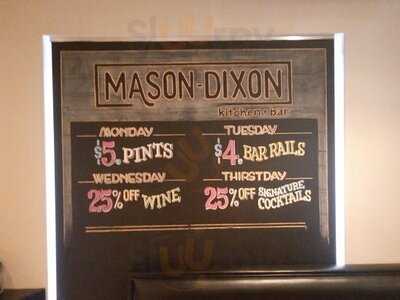 MASON-DIXON
kitchen + bar
MONDAY
$5. PINTS
TUESDAY
$4. BAR RAILS
WEDNESDAY
25% OFF WINE
THIRSTDAY
25% OFF SIGNATURE COCKTAILS